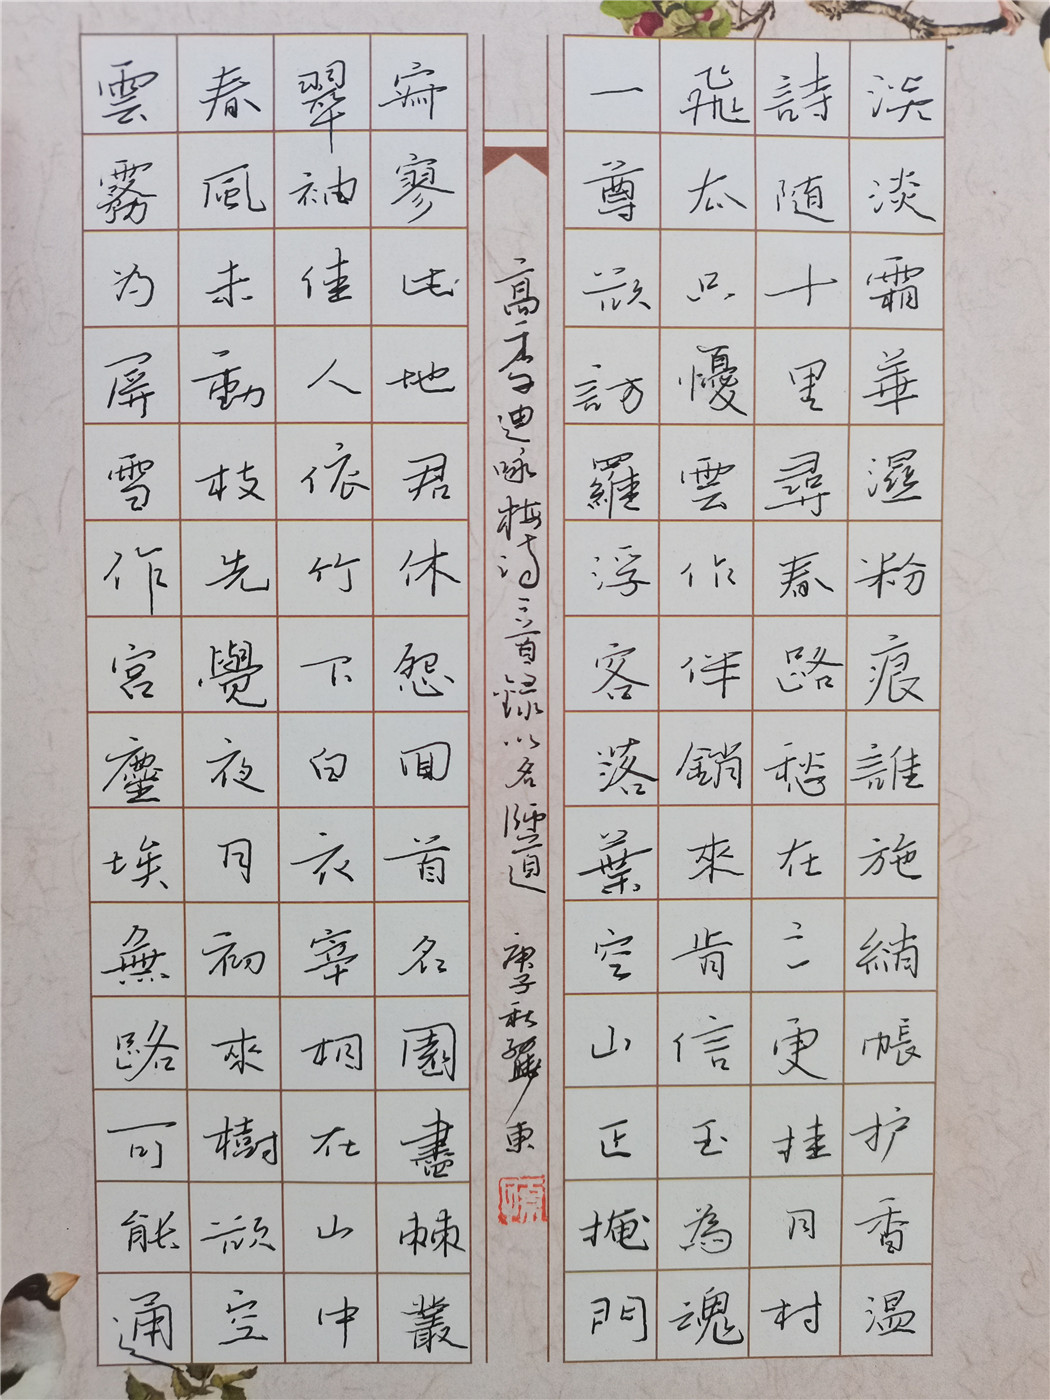 淡淡霜華濕粉痕誰施綃帳护香温
詩随十里尋春路愁在三更挂月村
飛去只憂雲作伴銷來肯信玉為魂
一尊欲訪羅浮客落葉空山正掩門
雲霧为屏雪作宮塵埃無路可能通
春風未動枝先覺夜月初來樹欲空
翠袖佳人依竹下白衣宰相在山中
寂寥此地君休怨回首名園盡棘叢
高季迪咏梅诗三首録以名道 庚子秋東